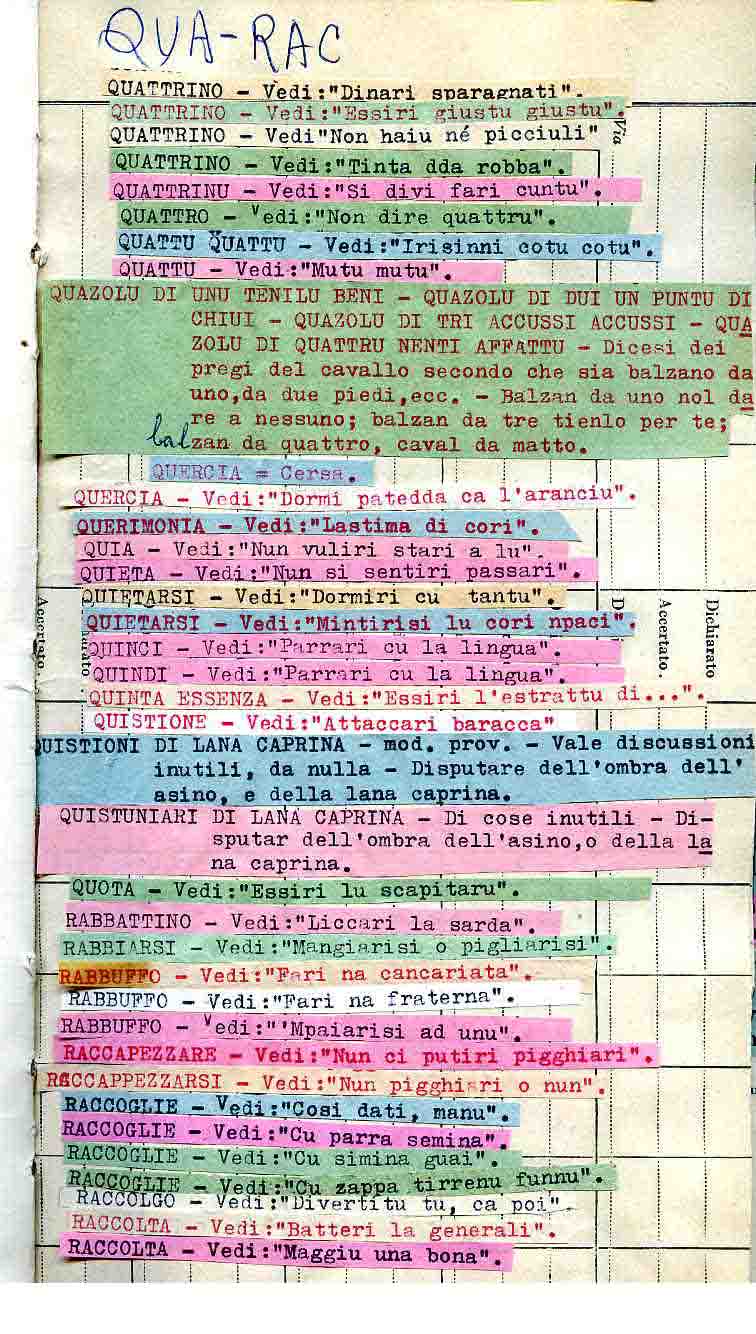 QUA-RAC
QUATTRINO - Vedi:"Dinari sparagnati".
QUATTRINO - Vedi:"Essiri giustu giustu".
QUATTRINO - Vedi"Non haiu né picciuli"
Via
QUATTRINO - Vedi:"Tinta dda robba".
QUATTRINU - Vedi:"Si divi fari cuntu".
QUATTRO - Vedi:"Non dire quattru".
QUATTU QUATTU - Vedi:"Irisinni cotu cotu".
QUATTU - Vedi:"Mutu mutu".
QUAZOLU DI UNU TENILU BENI - QUAZOLU DI DUI UN PUNTU DI
CHIUI - QUAZOLU DI TRI ACCUSSI ACCUSSI - QUA
ZOLU DI QUATTRU NENTI AFFATTU - Dicesi dei
pregi del cavallo secondo che sia balzano da
uno,da due piedi,ecc. - Balzan da uno nol da
re a nessuno; balzan da tre tienlo per te;
balzan da quattro, caval da matto.
QUERCIA = Cersa.
QUERCIA - Vedi:"Dormi patedda ca l'aranciu".
QUERIMONIA - Vedi:"Lastima di cori".
QUIA - Vedi:"Nun vuliri stari a lu".
QUIETA - Vedi:"Nun si sentiri passari".
QUIETARSI - Vedi:"Dormiri cu tantu".
QUIETARSI - Vedi:"Mintirisi lu cori npaci".
QUINCI - Vedi:"Parrari cu la lingua".
QUINDI - Vedi:"Parrari cu la lingua".
Accertato.
D
Accertato.
Dichiarato
QUINTA ESSENZA - Vedi:"Essiri l'estrattu di...".
QUISTIONE - Vedi:"Attaccari baracca"
UISTIONI DI LANA CAPRINA - mod. prov. - Vale discussioni
inutili, da nulla - Disputare dell'ombra dell'
asino, e della lana caprina.
QUISTUNIARI DI LANA CAPRINA - Di cose inutili - Di-
sputar dell'ombra dell'asino,o della la
na caprina.
QUOTA - Vedi:"Essiri lu scapitaru".
RABBATTINO - Vedi:"Liccari la sarda".
RABBIARSI - Vedi:"Mangiarisi o pigliarisi".
RABBUFFO - Vedi:"Fari na cancariata".
RABBUFFO - Vedi:"Fari na fraterna".
RABBUFFO - Vedi:"'Mpaiarisi ad unu".
RACCAPEZZARE - Vedi:"Nun ci putiri pigghiari".
RACCAPPEZZARSI - Vedi:"Nun pigghiari o nun".
RACCOGLIE - Vedi:"Cosi dati, manu".
RACCOGLIE - Vedi:"Cu parra semina".
RACCOGLIE - Vedi:"Cu simina guai".
RACCOGLIE - Vedi:"Cu zappa tirrenu funnu".
RACCOLGO - Vedi:"Divertitu tu, ca poi".
RACCOLTA - Vedi:"Batteri la generali".
RACCOLTA - Vedi:"Maggiu una bona".